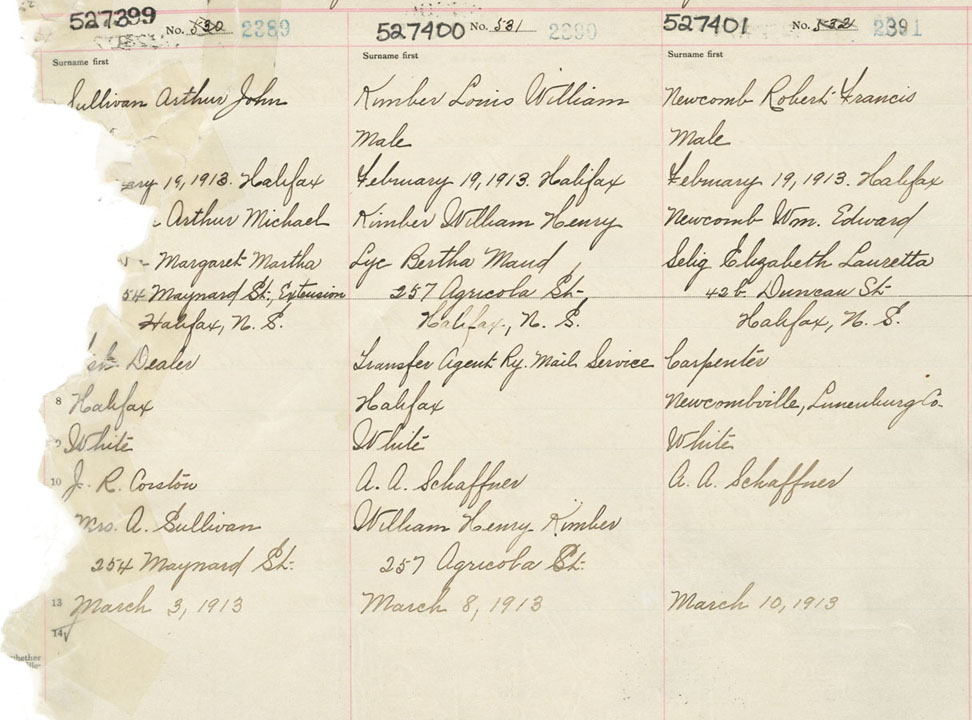 527399 No. 530 2389
Surname first
Sullivan Arthur John
ary 19, 1913. Halifax
Arthur Michael
Margaret Martha
54 Maynard St., Extension
Halifax, N. S.
Dealer
8 Halifax
9 White
10 J. R. Corston
Mrs. A. Sullivan
254 Maynard St.
13 March 3, 1913
14
whether
527400 No. 531 2390
Surname first
Kimber Louis William
Male
February 19, 1913. Halifax
Kimber William Henry
Lyc Bertha Maud
257 Agricola St.
Halifax, N. S.
Transfer Agent Ry. Mail Service
Halifax
White
A. A. Schaffner
William Henry Kimber
257 Agricola St.
March 8, 1913
527401 No. 532 2391
Surname first
Newcomb Robert Francis
Male
February 19, 1913. Halifax
Newcomb Wm. Edward
Selig Elizabeth Lauretta
42 b. Duncan St.
Halifax, N. S.
Carpenter
Newcombville, Lunenburg Co.
White
A. A. Schaffner
March 10, 1913